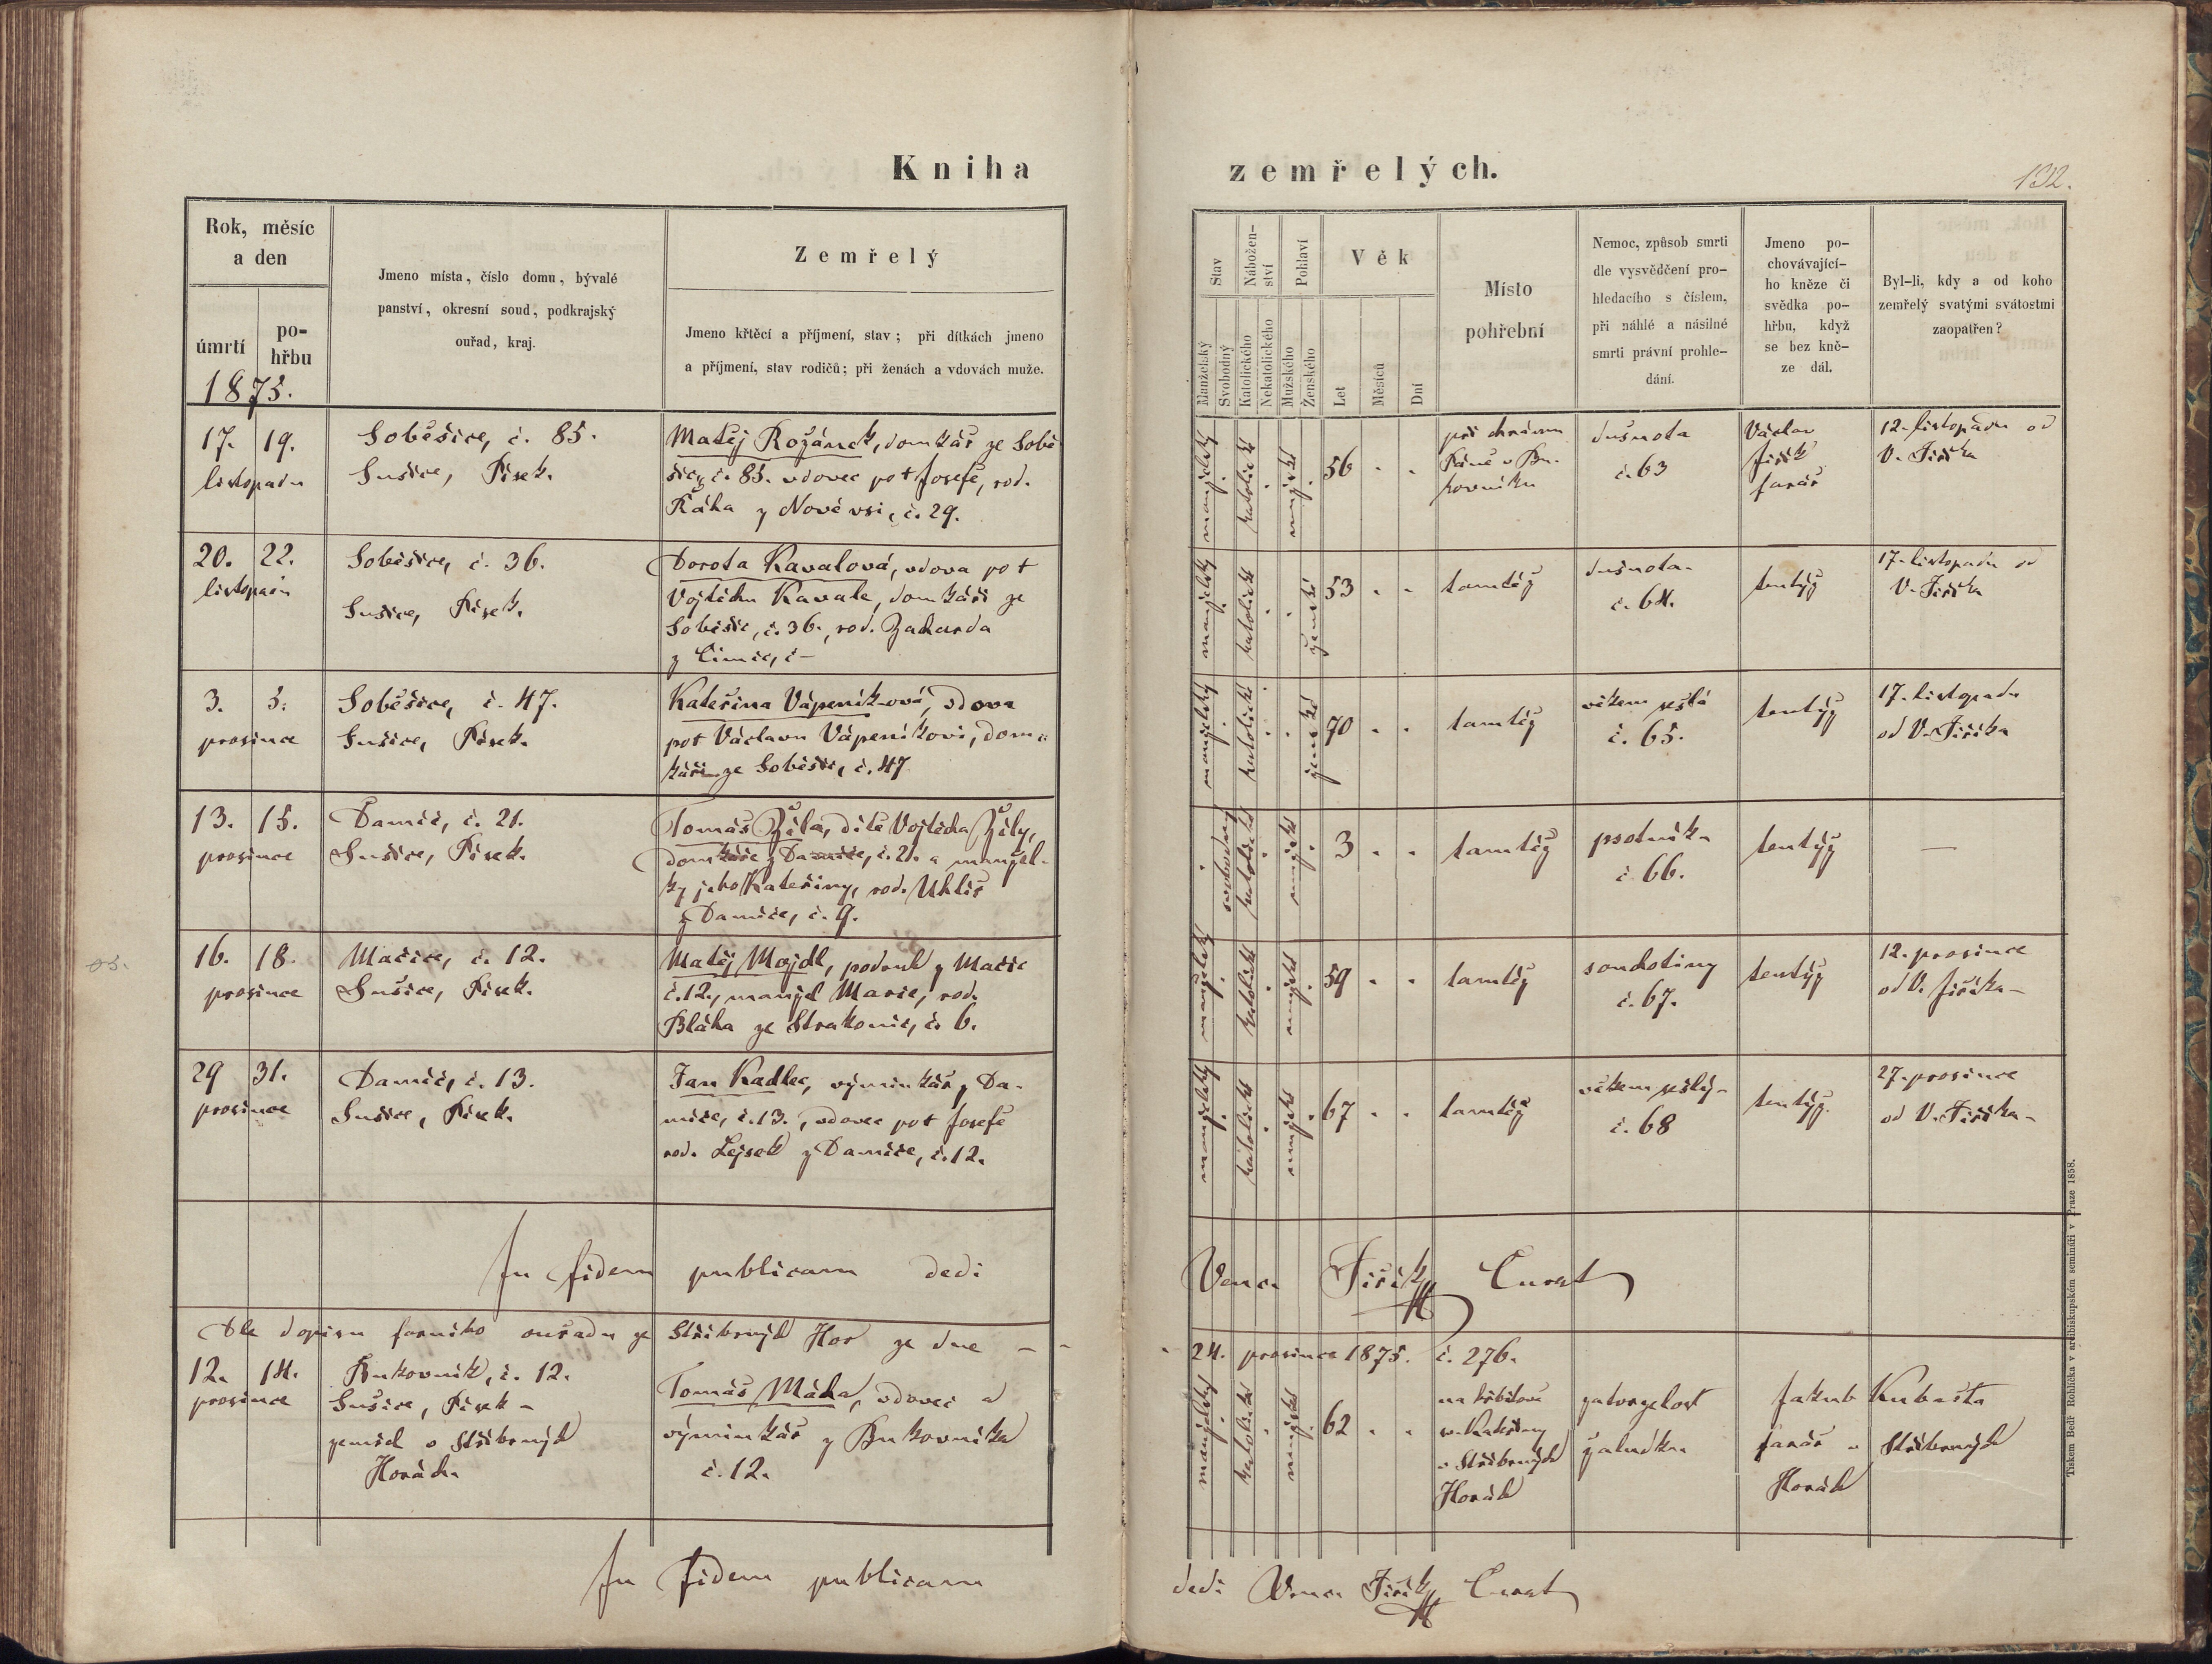 Kniha zemřelých.
132.
Rok, měsíc
a den
úmrtí
po-
hřbu
1875.
Jmeno místa, číslo domu, bývalé
panství, okresní soud, podkrajský
ouřad, kraj.
Zemřelý
Jmeno křtěcí a příjmení, stav; při dítkách jmeno
a příjmení, stav rodičů; při ženách a vdovách muže.
Stav
Manželský
Svobodný
Nábožen-
ství
Katolického
Nekatolického
Pohlaví
Mužského
Ženského
Věk
Let
Měsíců
Dní
Místo
pohřební
Nemoc, způsob smrti
dle vysvědčení pro-
hledacího s číslem,
při náhlé a násilné
smrti právní prohle-
dání.
Jmeno po-
chovávající-
ho kněze či
svědka po-
hřbu, když
se bez kně-
ze dál.
Byl-li, kdy a od koho
zemřelý svatými svátostmi
zaopatřen?
17. 19.
listopadu
Soběšice, č. 85.
Sušice, Písek.
Matěj Rožánek, domkář ze Sobě-
šic, č. 85. vdovec po † Josefě, rod.
z Nové vsi, č. 29.
manželský
katolické
mužské
56 . .
při chrámu
Páně v Bu-
kovníku
dušnota
č. 63
Václav
Jiřík
farář
12. listopadu od
V. Jiříka
20. 22.
listopadu
Soběšice, č. 36.
Sušice, Písek.
Dorota Kavalová, vdova po †
Vojtěchu Kavale, domkáři ze
Soběšic, č. 36., rod.
z Čimic, č –
manželský
katolické
ženské
53 . .
tamtéž
dušnota
č. 64.
tentýž
17. listopadu od
V. Jiříka
3. 5.
prosince
Soběšice, č. 47.
Sušice, Písek.
Kateřina Vápeníková, vdova
po † Václavu Vápeníkovi, dom-
káři ze Soběšic, č. 47
manželský
katolické
ženské
70 . .
tamtéž
věkem sešlá
č. 65.
tentýž
17. listopadu
od V. Jiříka
13. 15.
prosince
Damíč, č. 21.
Sušice, Písek.
Tomáš Žíla, dítě Vojtěcha Žíly,
domkáře z Damíče, č. 21. a manžel-
ky jeho Kateřiny, rod. Uhlíř
z Damíče, č. 9.
svobodný
katolické
mužské
3 . .
tamtéž
psotníka
č. 66.
tentýž
—
16. 18.
prosince
Mačice, č. 12.
Sušice, Písek.
Matěj Majdl, podruh z Mačic
č. 12., manžel Marie, rod.
Bláha ze Strakonic, č. 6.
manželský
katolické
mužské
59 . .
tamtéž
souchotiny
č. 67.
tentýž
12. prosince
od V. Jiříka –
29 31.
prosince
Damíč, č. 13.
Sušice, Písek.
Jan Kadlec, výminkář z Da-
míče, č. 13., vdovec po † Josefě
rod. Lejsek z Damíče, č. 12.
manželský
katolické
mužské
67 . .
tamtéž
věkem sešlý –
č. 68
tentýž.
27. prosince
od V. Jiříka –
In fidem publicam dedi Venc. Jiřík Curat
Dle dopisu farního ouřadu ze Stříbrných Hor ze dne – – 24. prosince 1875. č. 276.
12. 14.
prosince
Bukovník, č. 12.
Sušice, Písek –
zemřel v Stříbrných
Horách
Tomáš Mácha, vdovec a
výminkář z Bukovníka
č. 12.
manželský
katolické
mužské
62 . .
na hřbitově
sv. Kateřiny
v Stříbrných
Horách
zatvrzelost
žaludku
Jakub Kubašta
farář v Stříbrných
Horách
In fidem publicam dedi Venc. Jiřík Curat
Tiskem Bedř. Rohlíčka v arcibiskupském semináři v Praze 1858.